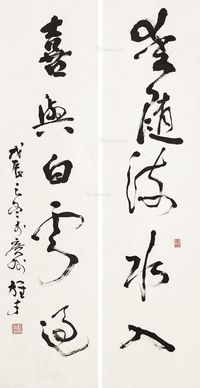 隨流水入
喜與白雲過
戊辰之冬於廣州 雄才